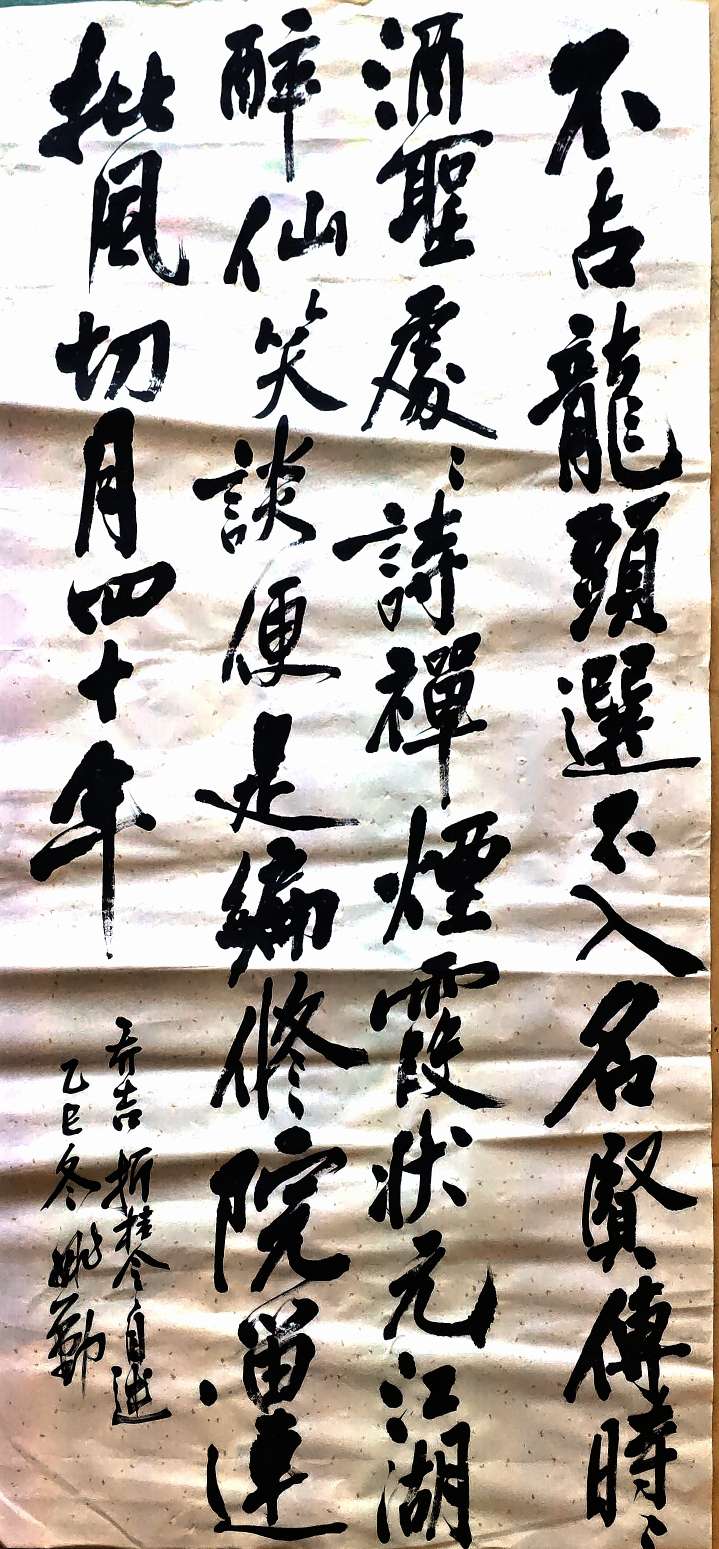 不占龍頭選不入名賢傳時々
酒聖處々詩禪煙霞状元江湖
醉仙笑談便是編修院留連
批風切月四十年
乔吉 折桂令自述
乙巳冬 姚勤